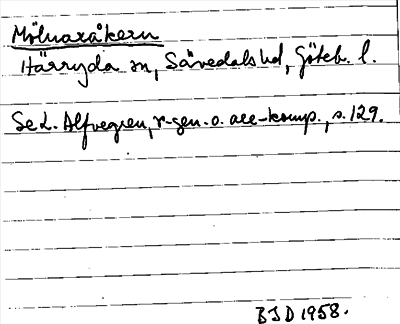 Mölnaråkern
Härryda sn, Sävedals hd, Göteb. l.
Se L. Alfvegren, r-gen. o. all-komp., s. 129.
BJD 1958.